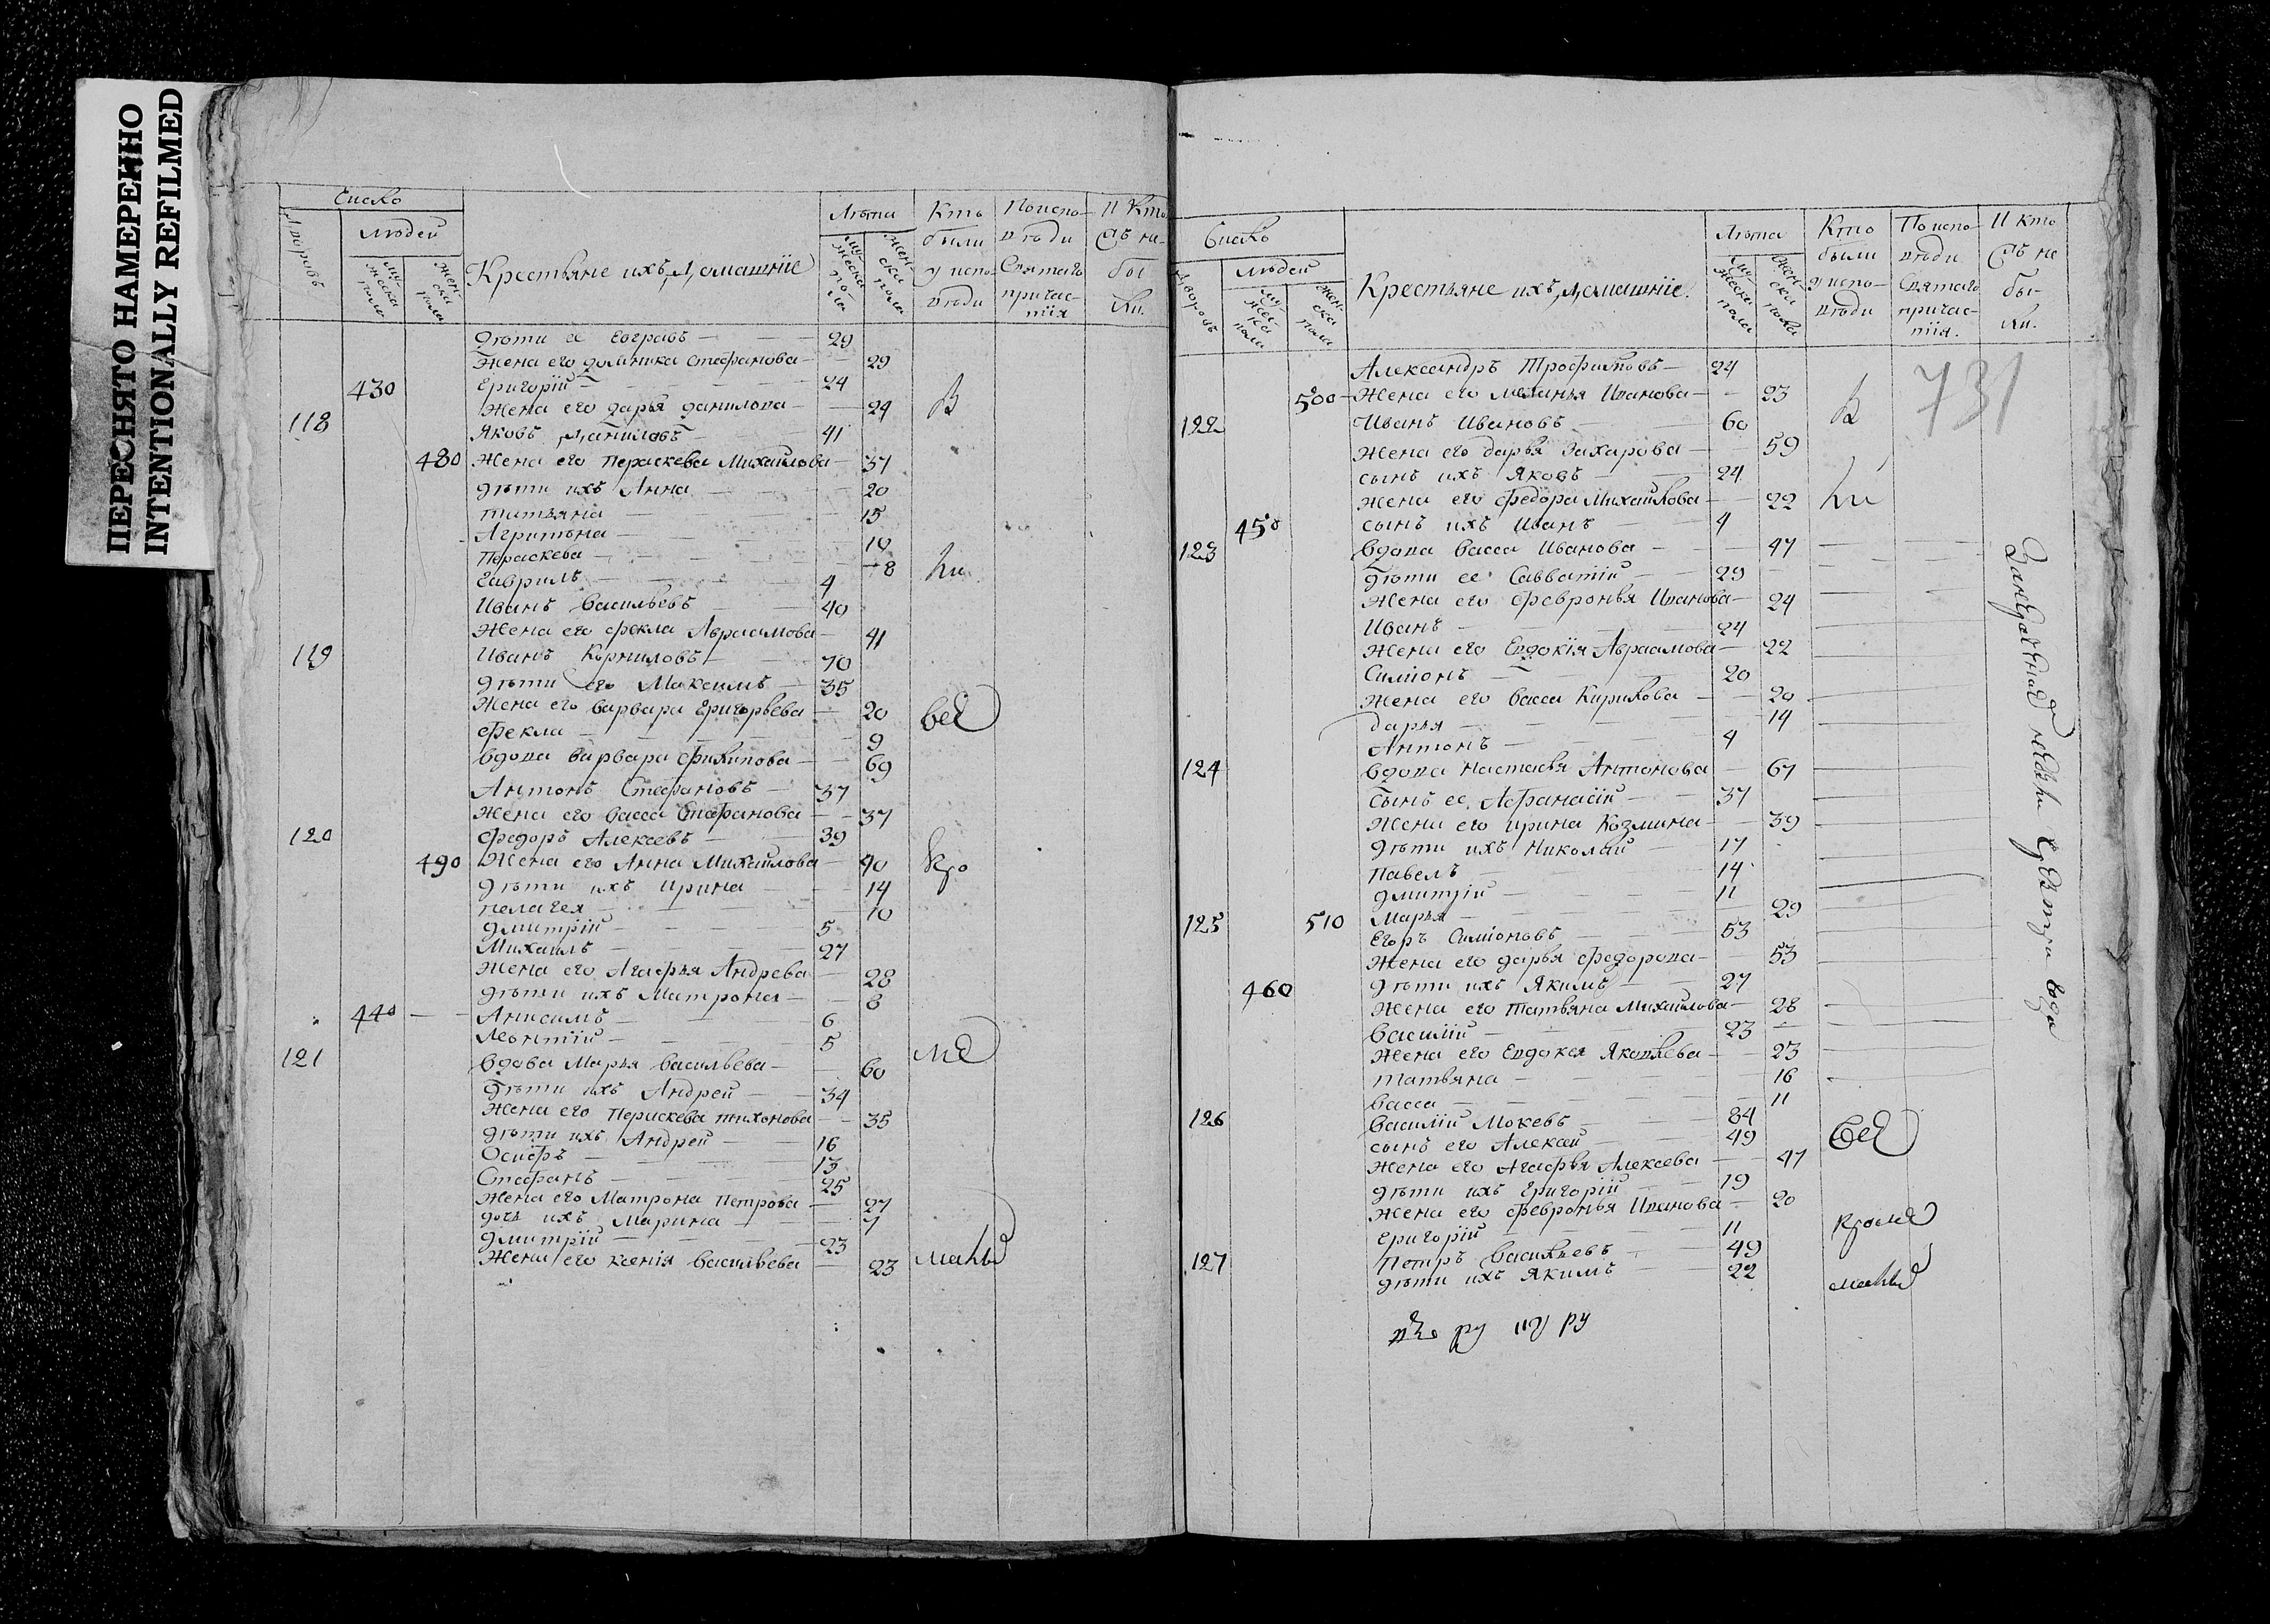 ПЕРЕСНЯТО НАМЕРЕННО
INTENTIONALLY REFILMED
Число
Дворовъ
людей
мужеска пола
женска пола
Крестьяне ихъ, Домашніе
Лѣта
мужеска пола
женска пола
Кто были у исповѣди
По исповѣди Святаго причастія
И Кто съ не были.
Дѣти ее Евграфъ 29
Жена его домника Стефанова 29
430 Григорій 24
Жена его дарья данилова 24 В
118 Яковъ Даниловъ 41
480 Жена его Пераскева Михайлова 37
дѣти ихъ Анна 20
татьяна 15
Агрипѣна 10
Параскева 8
Гаврилъ 4 ли
Иванъ Васильевъ 40
Жена его фекла Авраамова 41
119 Иванъ Корниловъ 70
дѣти его Максимъ 35
Жена его варвара Григорьева 20 всѣ
фекла 9
вдова варвара Филипова 69
Антонъ Стефановъ 37
Жена его васса Стефанова 37
120 Федоръ Алексевъ 39
490 Жена его Анна Михайлова 40 кро
дѣти ихъ ирина 14
пелагея 10
дмитрій 5
Михаилъ 27
Жена его Агафья Андрева 28
дѣти ихъ Матрона 8
440 Анисимъ 6
Леонтій 5 мѣ
121 вдова Марья васильева 60
Дѣти ихъ Андрей 34
Жена его Пераскева тихонова 35
дѣти ихъ Андрей 16
Осифъ 13
Стефанъ 25
Жена его Матрона петрова 27
дочь ихъ Марина 1
дмитрій 23
Жена его ксенія васильева 23 малы
Число
Дворовъ
людей
мужеска пола
женска пола
Крестьяне ихъ, Домашніе.
Лѣта
мужеска пола
женска пола
Кто были у исповѣди
По исповѣди Святаго причастія.
И кто съ не были.
731
Александръ Трофимовъ 24
500 Жена его меланья Иванова 23
122 Иванъ Ивановъ 60 В
Жена его дарья Захарова 59
сынъ ихъ Яковъ 24
Жена его Федора Михайлова 22 ли
450 сынъ ихъ Иванъ 4
123 вдова васса Иванова 47
дѣти ее Савватій 29
Жена его Февронья Иванова 24
Иванъ 24
Жена его Евдокія Авраамова 22
Симіонъ 20
Жена его васса Кирилова 20
дарья 14
Антонъ 4
124 вдова настасья Антонова 67
сынъ ее Афанасій 37
Жена его ирина Козмина 39
дѣти ихъ Николай 17
Павелъ 14
дмитрій 11
510 Марья 29
125 Егоръ Симіоновъ 53
Жена его дарья федорова 53
460 дѣти ихъ Якимъ 27
Жена его татьяна михайлова 28
василій 23
Жена его Евдокея Яковлева 23
татьяна 16
васса 11
126 Василій Мокевъ 84
сынъ его Алексѣй 49 всѣ
Жена его Агафья Алексеева 47
дѣти ихъ Григорій 19
Жена его Февронья Иванова 20
Григорій 11 кромѣ
127 Петръ Васильевъ 49
дѣти ихъ Якимъ 22 малы